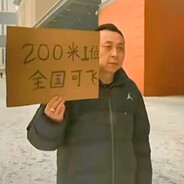 200米1位
全国可飞